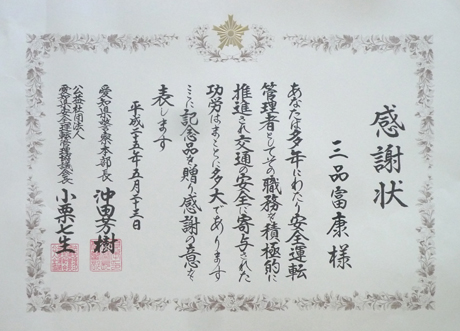 感謝状
三品富康様
あなたは多年にわたり安全運転
管理者としてその職務を積極的に
推進され交通の安全に寄与された
功労はまことに多大であります
ここに記念品を贈り感謝の意を
表します
平成二十五年五月二十三日
愛知県警察本部長 沖田芳樹
公益社団法人
愛知県安全運転管理協議会会長 小栗七生